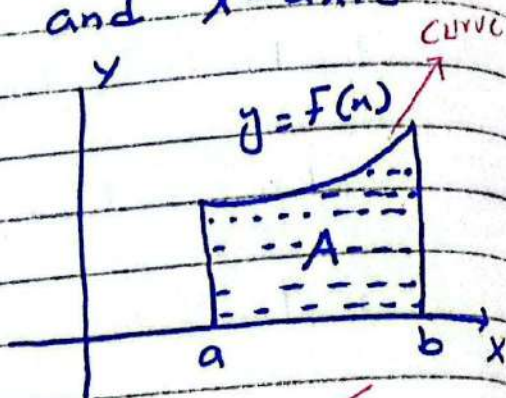 and x
curve
y
y = F(x)
A
a b x